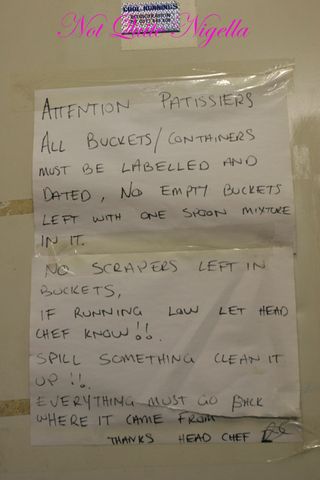 COOL RUNNINGS
Not Quite Nigella
ATTENTION PATISSIERS
ALL BUCKETS/CONTAINERS
MUST BE LABELLED AND
DATED, NO EMPTY BUCKETS
LEFT WITH ONE SPOON MIXTURE
IN IT.
NO SCRAPERS LEFT IN
BUCKETS,
IF RUNNING LOW LET HEAD
CHEF KNOW!!.
SPILL SOMETHING CLEAN IT
UP !!.
EVERYTHING MUST GO BACK
WHERE IT CAME FROM
THANKS HEAD CHEF